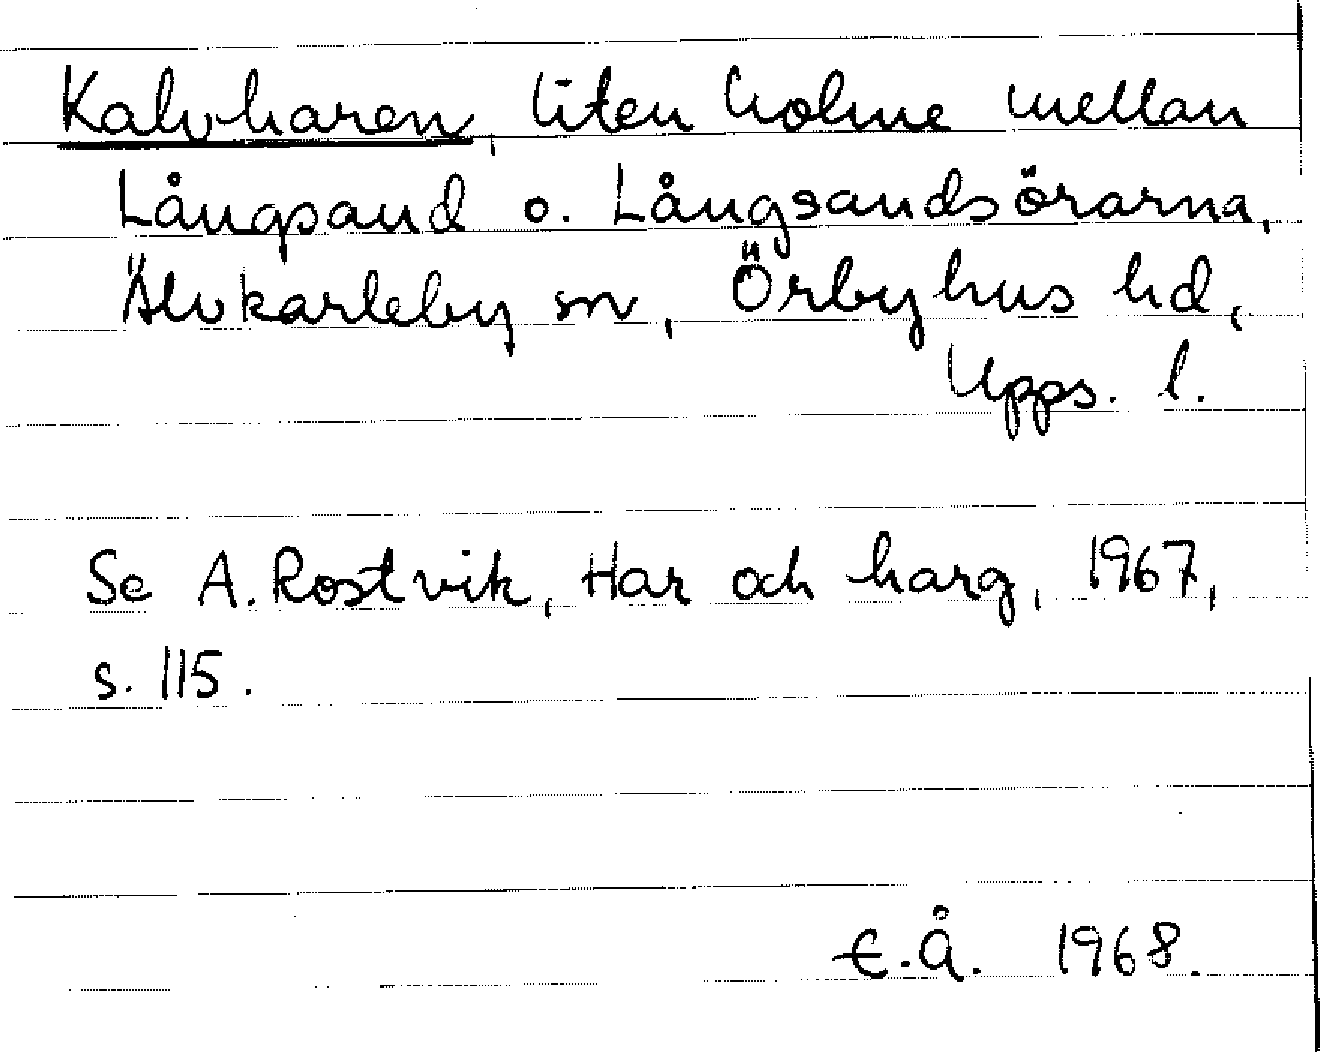 Kalvharen, liten holme mellan
Långsand o. Långsandsörarna,
Älvkarleby sn, Örbyhus hd,
Upps. l.
Se A. Rostvik, Har och harg, 1967,
s. 115.
E.Å. 1968.